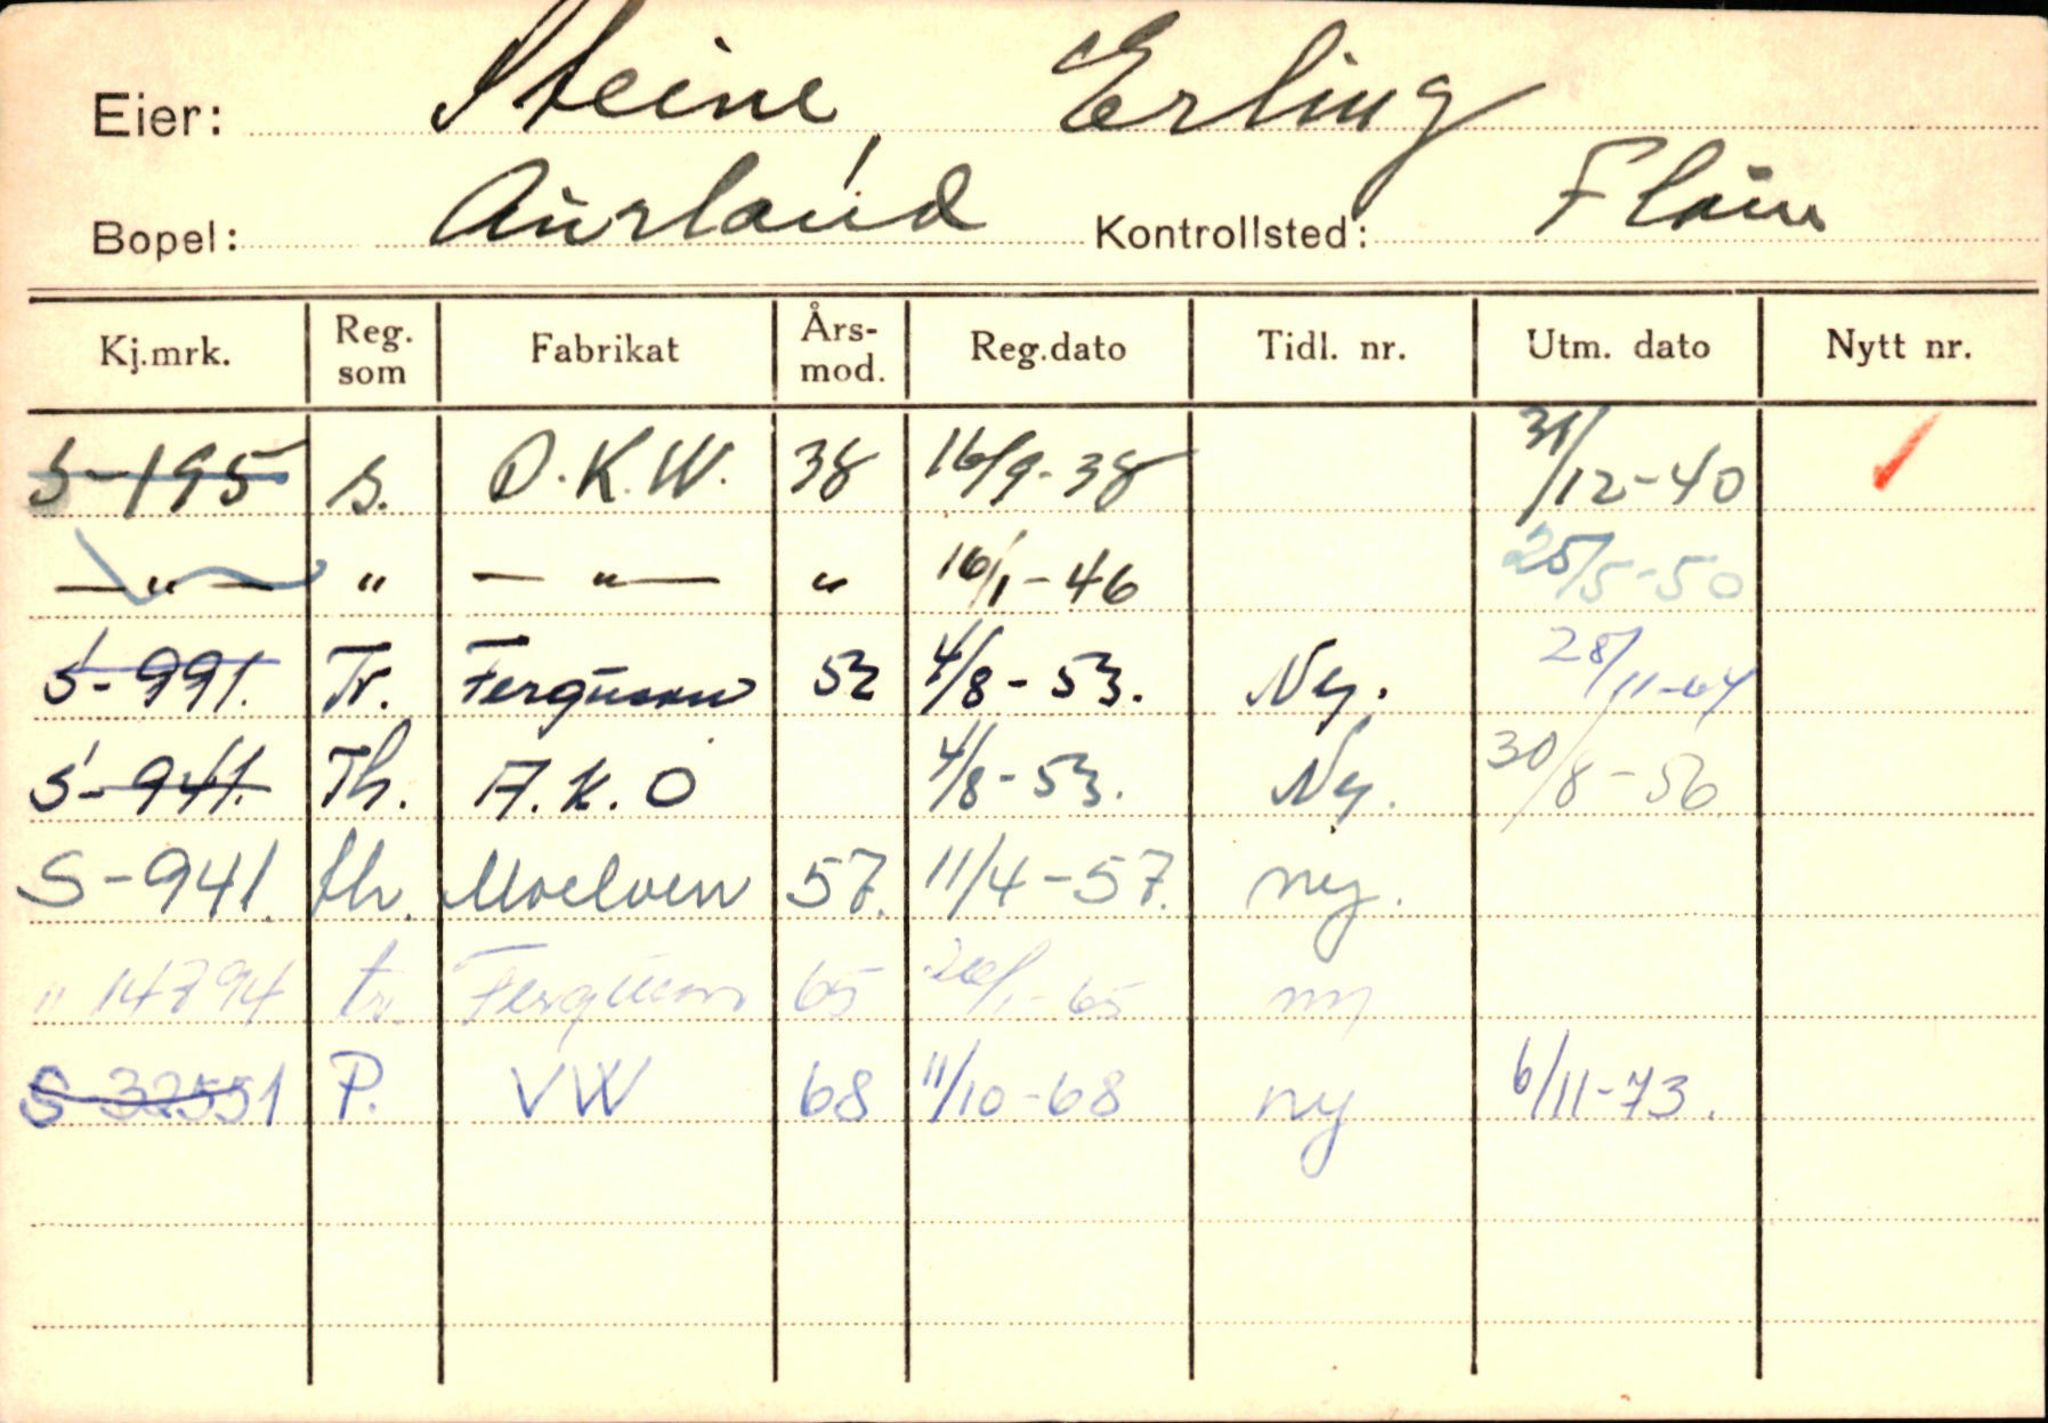 Eier: Steine, Erling
Bopel: Aurland Kontrollsted: Flåm
Kj.mrk. Reg. som Fabrikat Års-mod. Reg.dato Tidl. nr. Utm. dato Nytt nr.
S-195 s. D.K.W. 38 16/9-38 31/12-40 ✓
—"— " —"— " 16/1-46 25/5-50
S-991. Tr. Ferguson 52 4/8-53. Ny. 28/11-64
S-941. Th. A.K.O 4/8-53. Ny. 30/8-56
S-941. th. Moelven 57. 11/4-57. ny.
" 14794 tr. Ferguson 65 26/1-65 ny
S-32551 P. VW 68 11/10-68 ny 6/11-73.